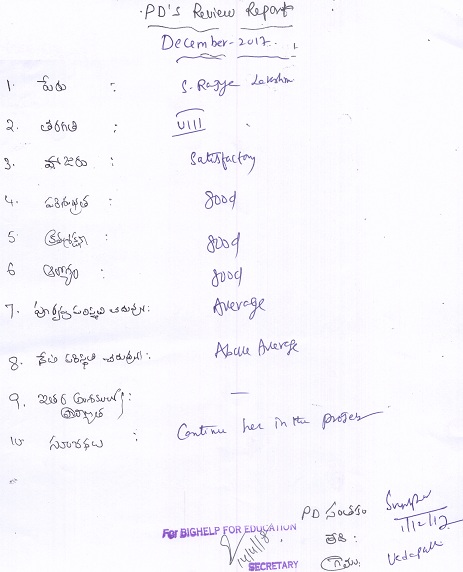 PD'S Review Report
December-2017.
1. పేరు : S. Rajya Lakshmi
2. తరగతి : VIII
3. హాజరు : Satisfactory
4. పరిశుభ్రత : Good
5 క్రమశిక్షణ : Good
6 ఆరోగ్యం : Good
7. పూర్వపు పరిస్థితి చదువులో : Average
8. నేటి పరిస్థితి చదువులో : Above Average
9. ఇతర : —
10 సూచనలు : Continue her in the
PD సంతకం
1/12/17
తేది :
గ్రామం :
For BIGHELP FOR EDUCATION
SECRETARY